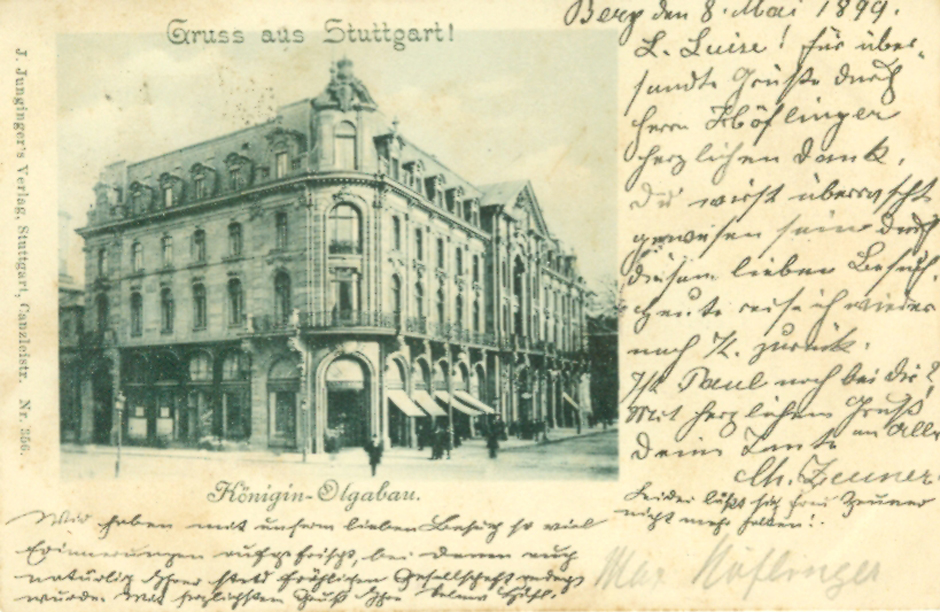 Gruss aus Stuttgart!
J. Junginger's Verlag, Stuttgart, Canzleistr. Nr. 356.
Königin-Olgabau.
Berg den 8. Mai 1899.
L. Luise! für über-
sandte Grüße durch
Herrn Höflinger
herzlichen Dank.
Du wirst überrascht
gewesen sein durch
diesen lieben Besuch.
Heute reise ich wieder
nach K. zurück.
Ist Paul noch bei dir?
Mit herzlichem Gruß
an Alle
Deine Tante
Ch. Zeuner.
Leider läßt sich Frau Zeuner
nicht mehr halten!
Wir haben mit unserm lieben Besuch so viel
Erinnerungen aufgefrischt, bei denen auch
natürlich Ihrer stets fröhlichen Gesellschaft
wurde. Mit herzlichsten Gruß Ihre
Max Höflinger